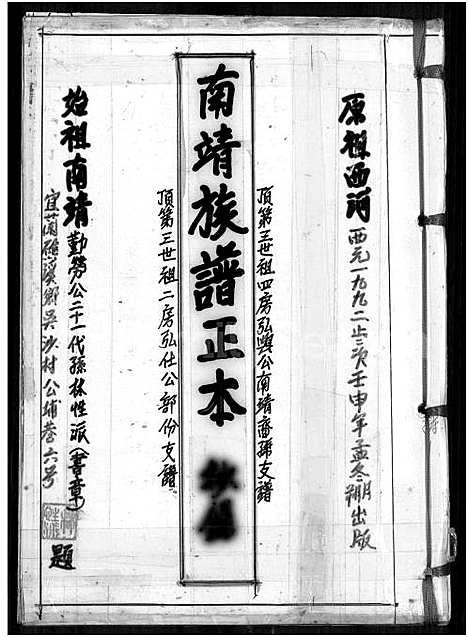 原祖西河 西元一九九二止三次壬申年孟冬朔月出版
頂第三世祖四房弘與公南靖裔孫支譜
南靖族譜正本
頂第三世祖二房弘仕公部份支譜
始祖南靖勤勞公二十一代孫林性派(書章)
宜蘭礁溪鄉吳沙村公埔巷六号
題